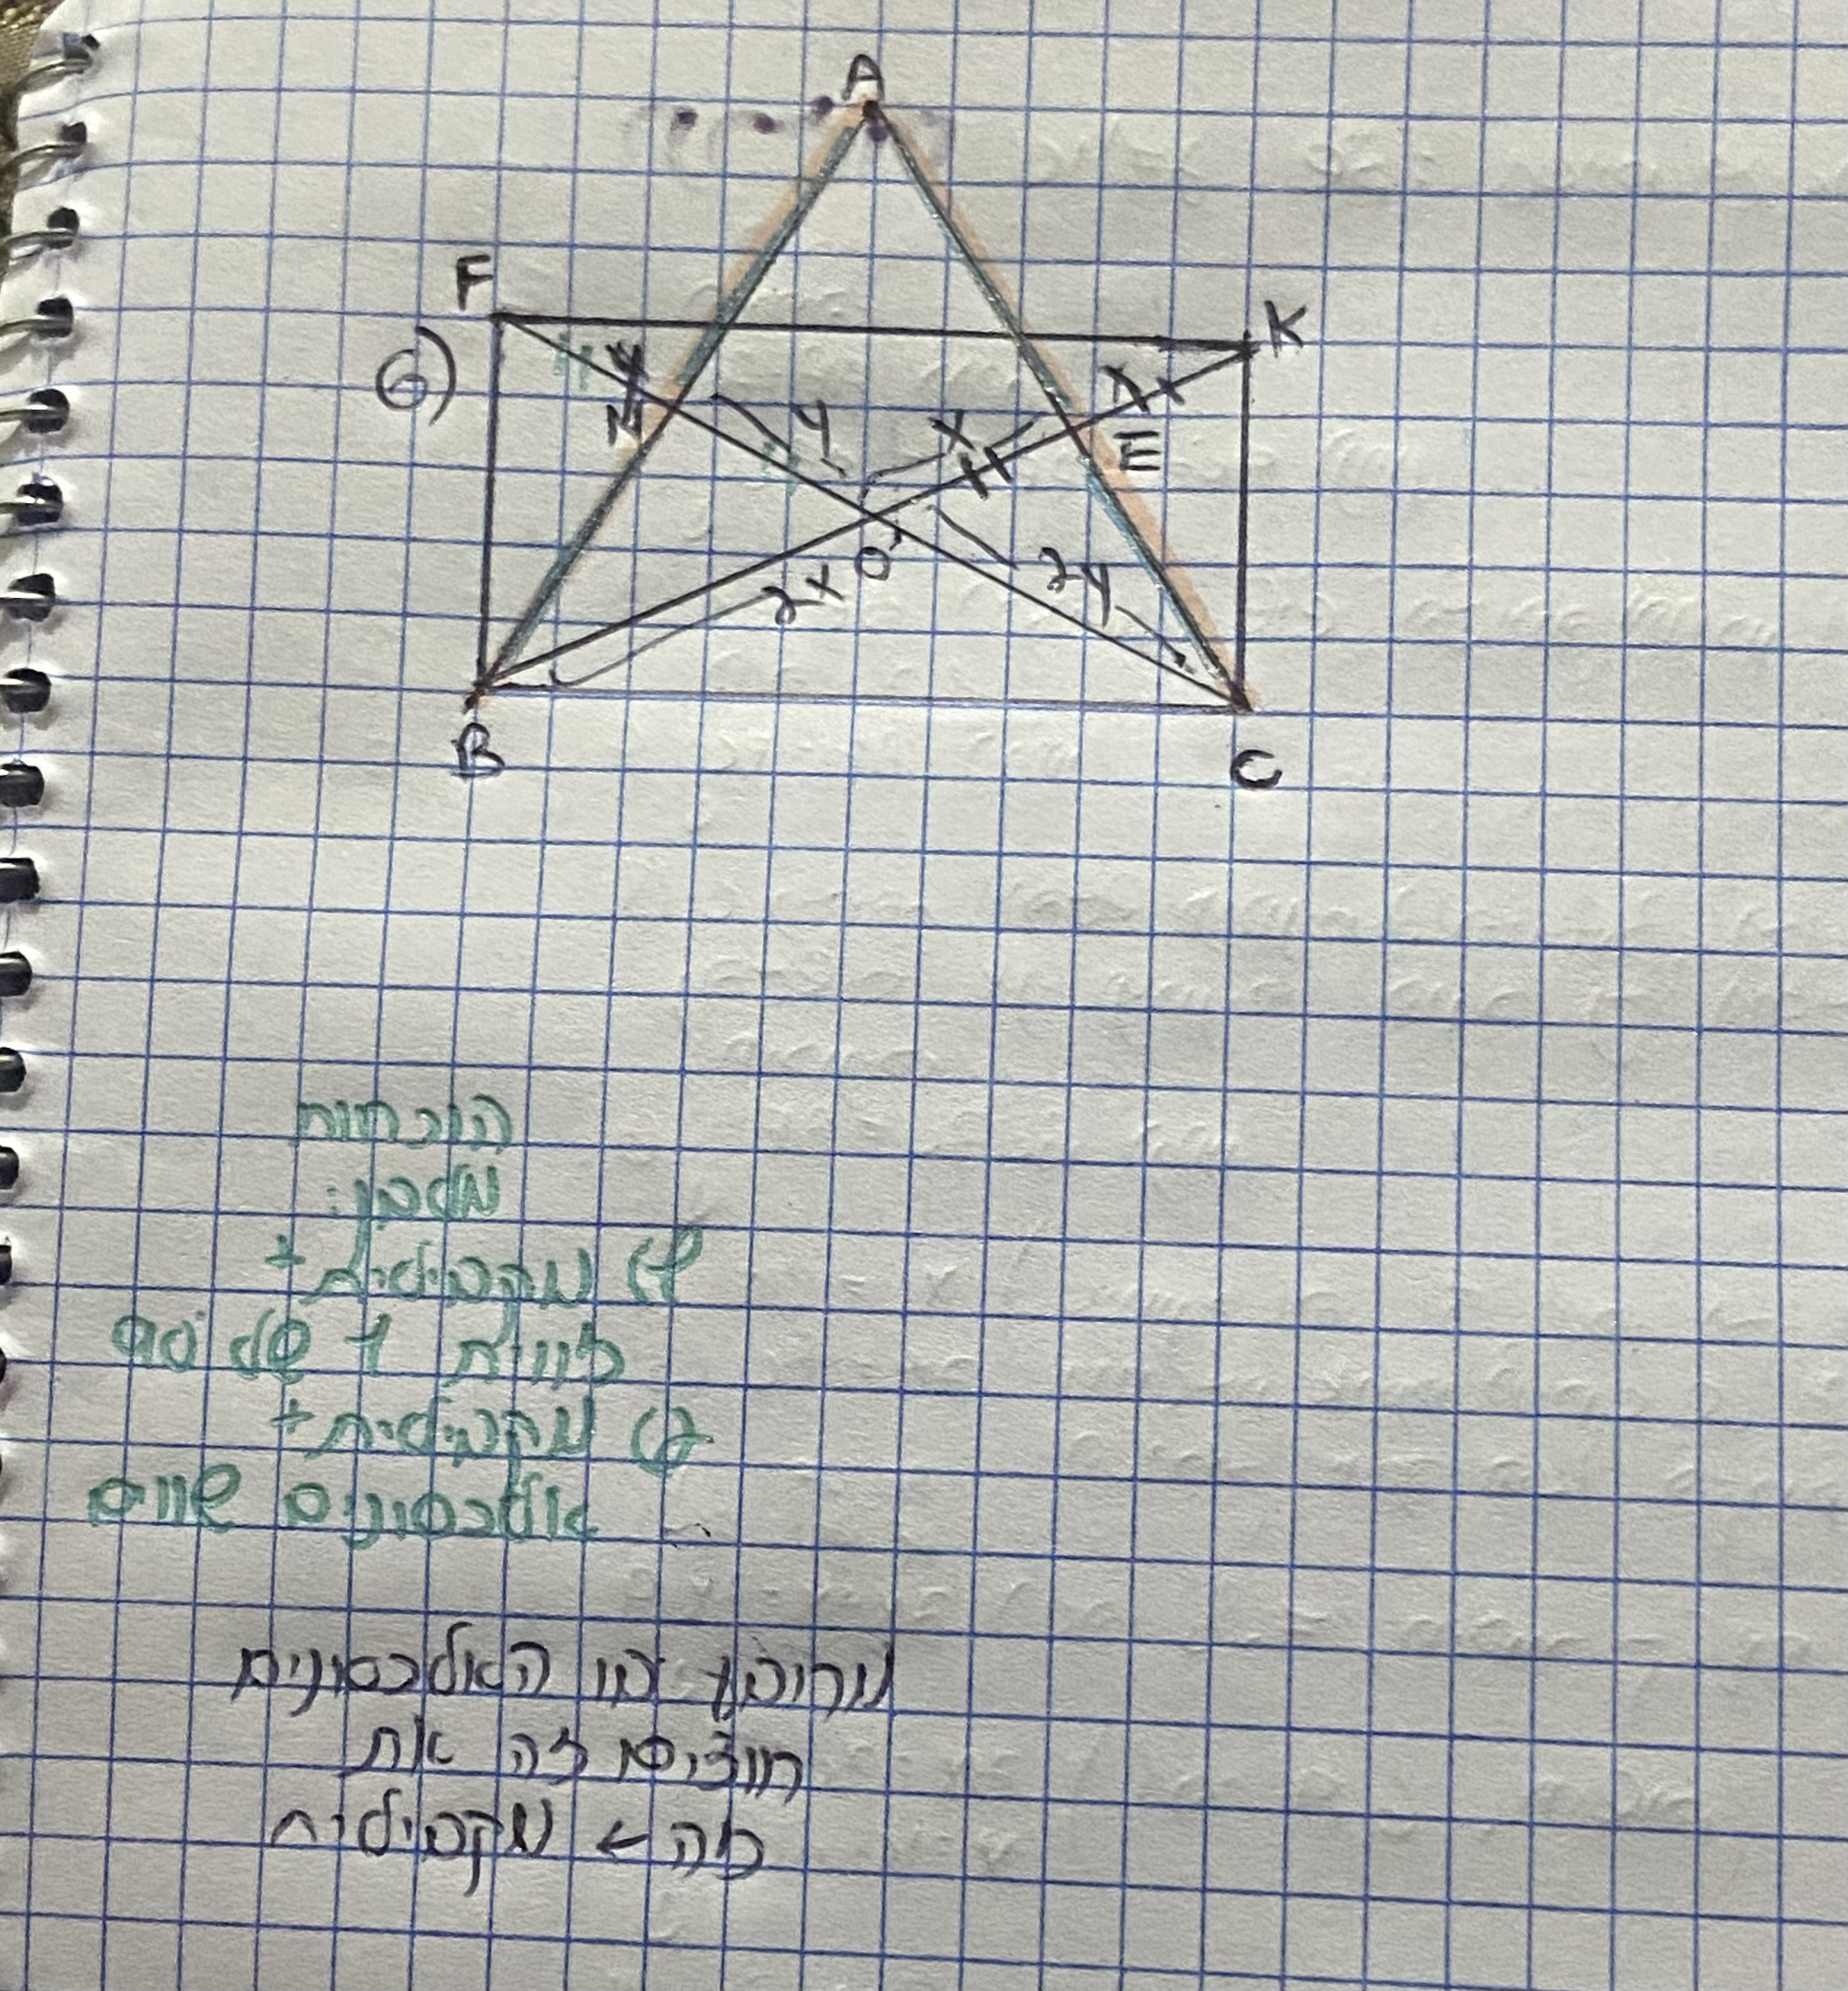 A
F
K
6)
y
x
M
y
x
E
O
2x
2y
B
C
הוכחות
מלבן:
1) מקבילית +
זווית 1 של 90°
2) מקבילית +
אלכסונים שווים
מרובע בו האלכסונים
חוצים זה את
זה ← מקבילית